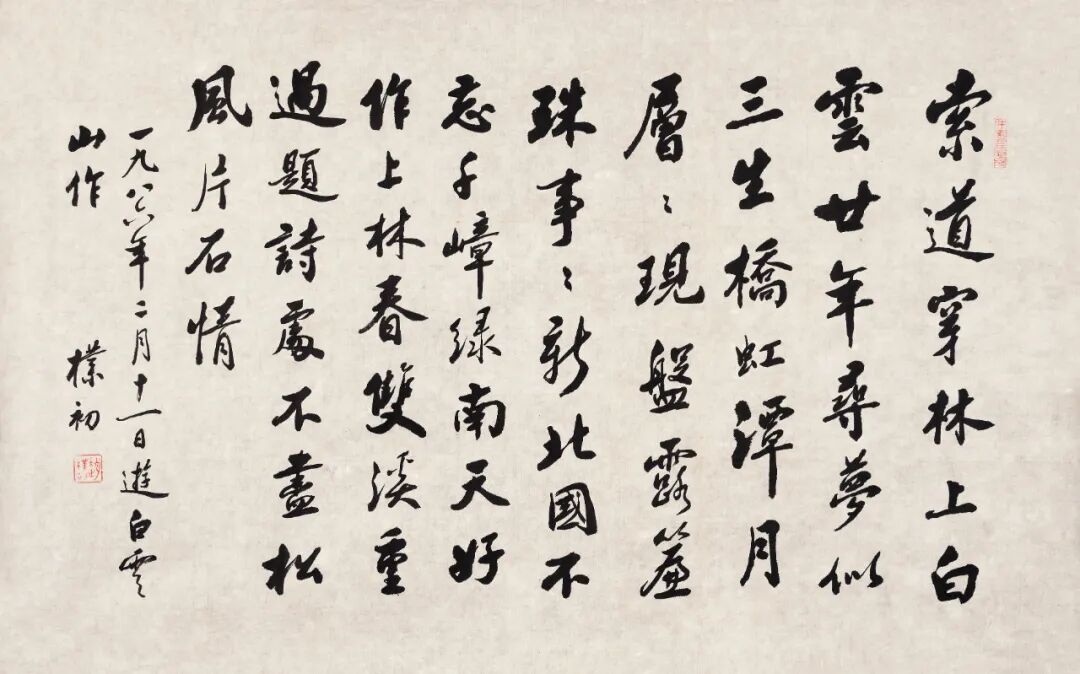 索道穿林上白
雲廿年尋夢似
三生橋虹潭月
層〻現盤露簾
珠事〻新北國不
忘千嶂綠南天好
作上林春雙淡重
過題詩處不盡松
風片石情
一九八六年二月十一日遊白雲
山作 樸初